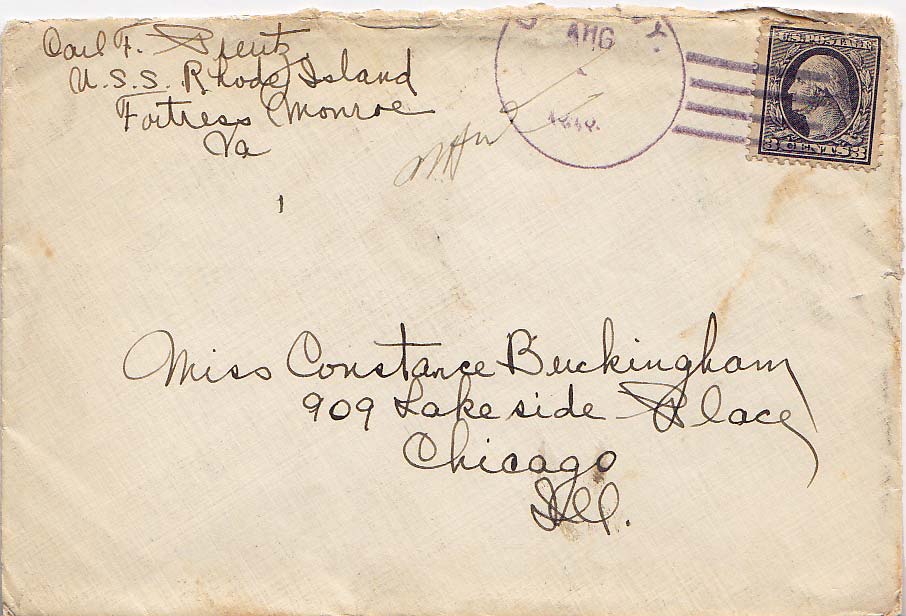 Carl F.
U.S.S. Rhode Island
Fortress Monroe
Va
AUG
U.S. POSTAGE
3 CENTS 3
Miss Constance Buckingham
909 Lakeside Place
Chicago
Ill.